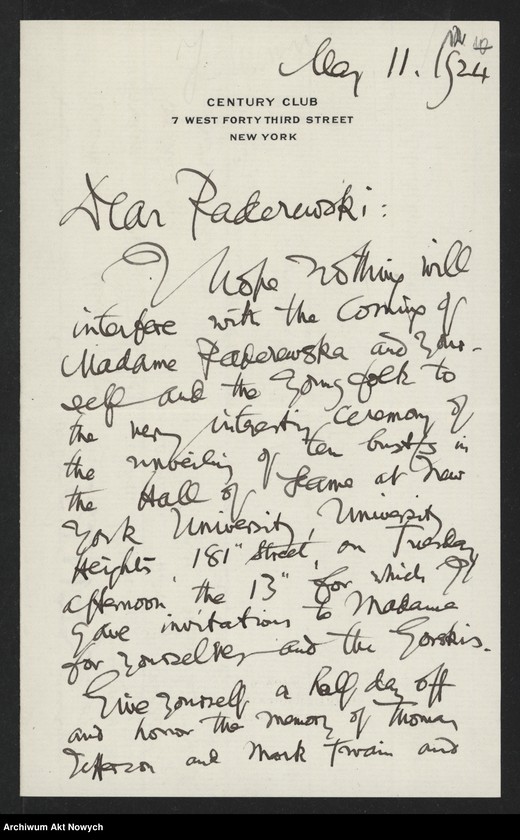 May 11. 1924
CENTURY CLUB
7 WEST FORTY THIRD STREET
NEW YORK
Dear Paderewski:
I hope nothing will
interfere with the coming of
Madame Paderewska and your-
self and the young folk to
the very interesting ceremony of
the unveiling of ten busts in
the Hall of Fame at New
York University, University
Heights, 181" Street, on Tuesday
afternoon the 13" for which I
gave invitations to Madame
for yourselves and the Gorskis.
Give yourself a half day off
and honor the memory of Thomas
Jefferson and Mark Twain and
Archiwum Akt Nowych